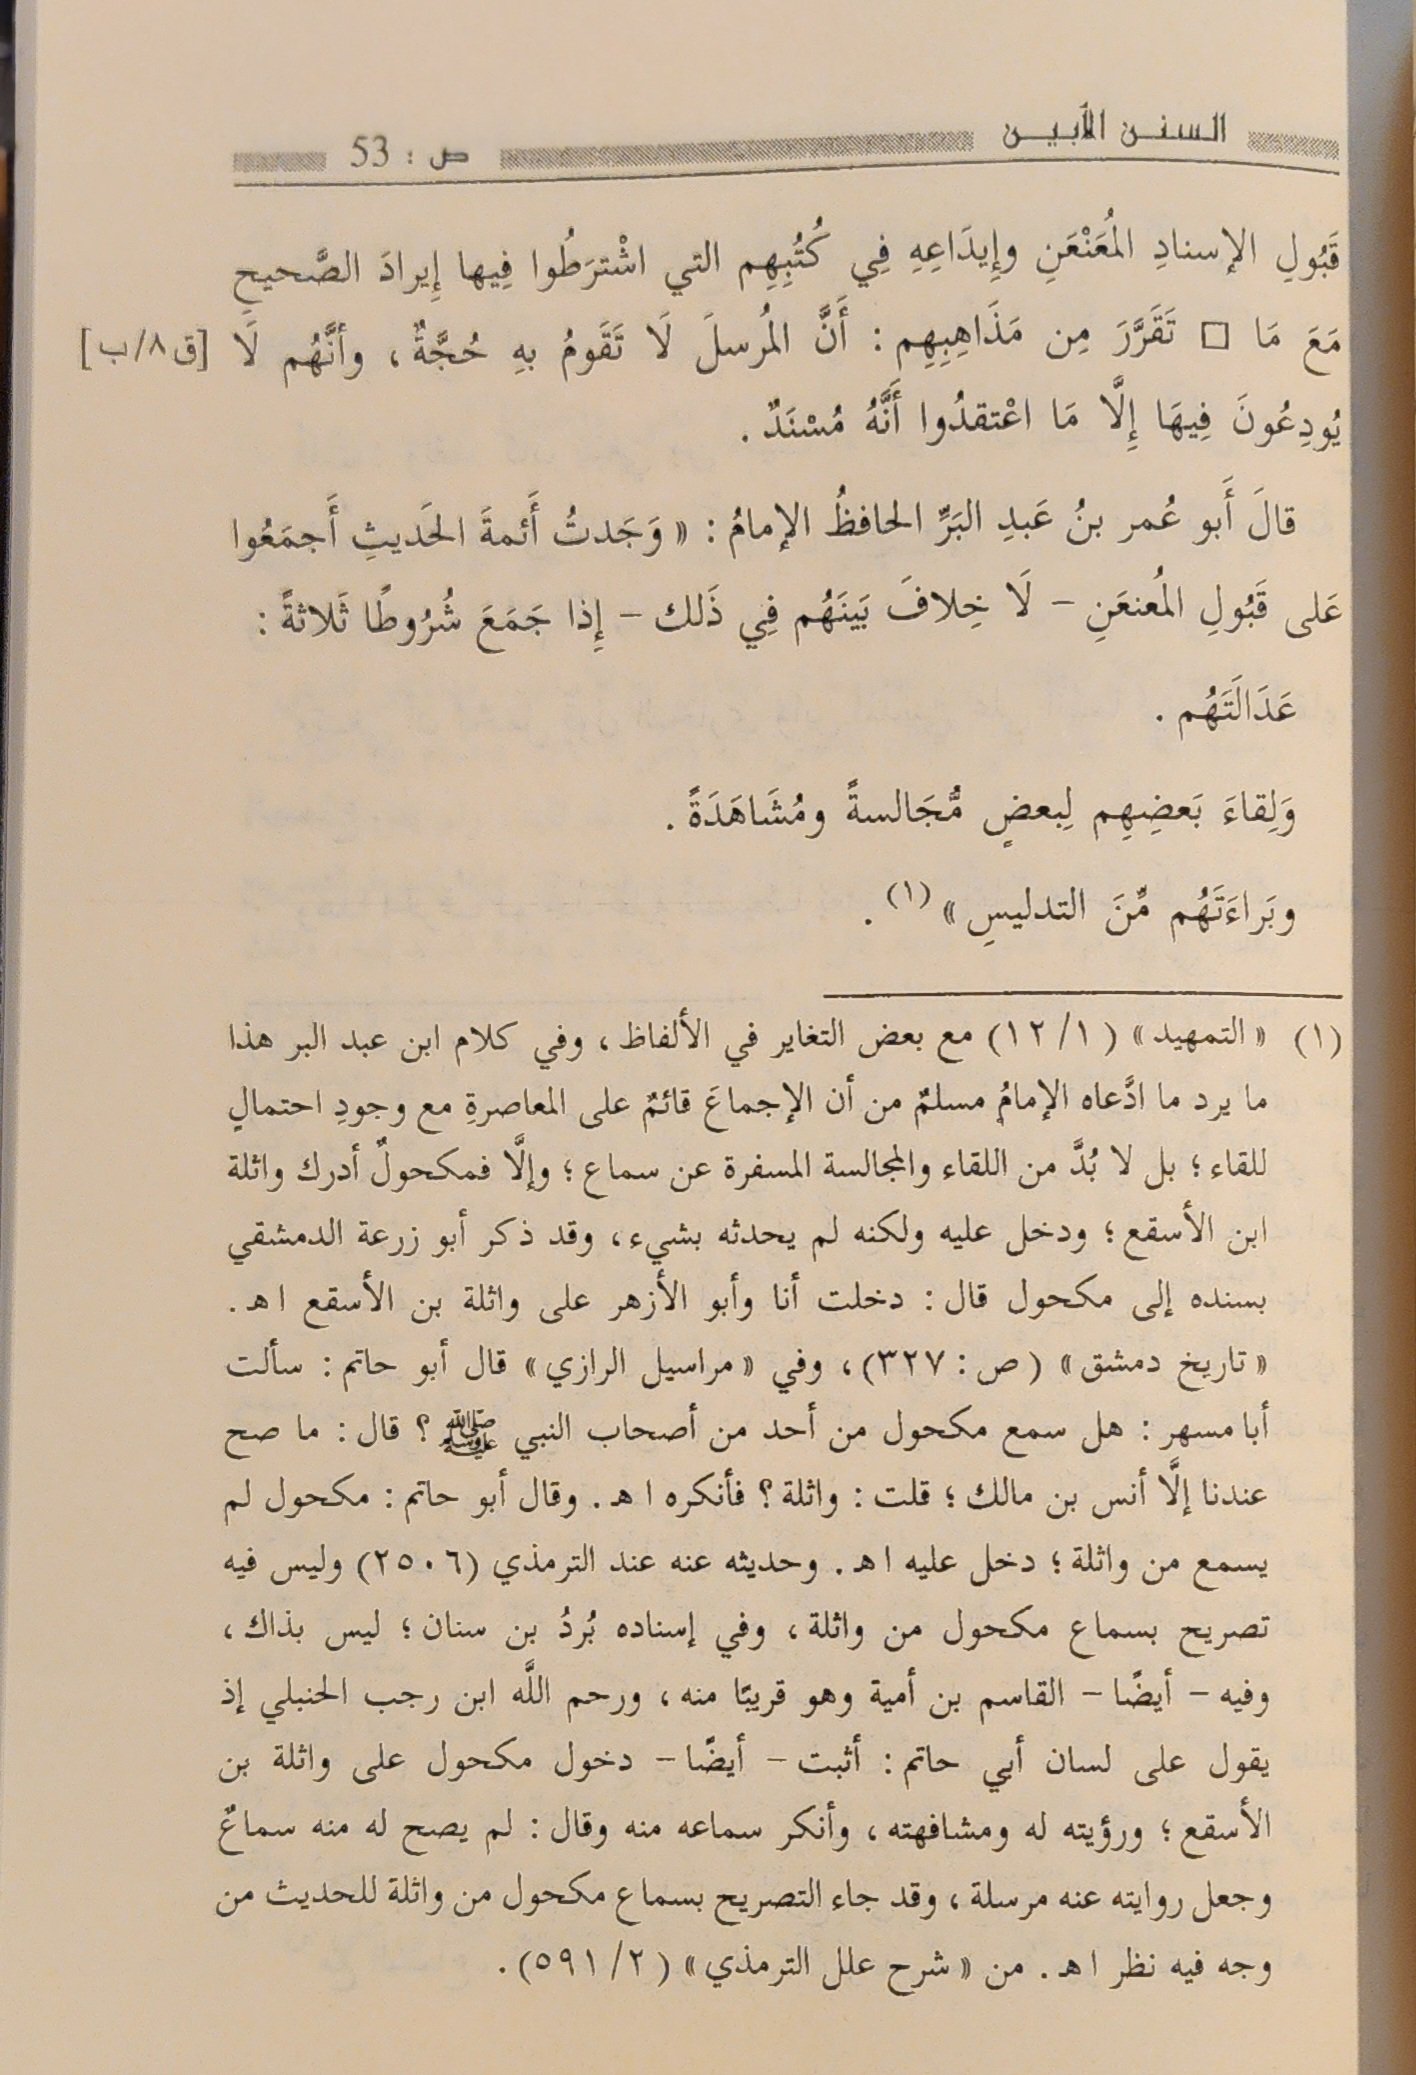 السنن الأبين ص : 53
قَبُولِ الإسنادِ المُعَنْعَنِ وإِيدَاعِهِ فِي كُتُبِهِم التي اشْترَطُوا فِيها إِيرادَ الصَّحيحِ
مَعَ مَا □ تَقَرَّرَ مِن مَذَاهِبِهِم : أَنَّ المُرسلَ لَا تَقَومُ بهِ حُجَّةٌ ، وأنَّهُم لَا [ق٨/ب]
يُودِعُونَ فِيهَا إِلَّا مَا اعْتقدُوا أَنَّهُ مُسْنَدٌ .
قالَ أَبو عُمر بنُ عَبدِ البَرِّ الحافظُ الإمامُ : « وَجَدتُ أَئمةَ الحَديثِ أَجمَعُوا
عَلى قَبُولِ المُعنعَنِ - لَا خِلافَ بَينَهُم فِي ذَلك - إِذا جَمَعَ شُرُوطًا ثَلاثةً :
عَدَالَتَهُم .
وَلِقاءَ بَعضِهِم لِبعضٍ مُّجَالسةً ومُشَاهَدَةً .
وبَراءَتَهُم مِّنَ التدليسِ » (١) .
(١) « التمهيد » (١٢/١) مع بعض التغاير في الألفاظ ، وفي كلام ابن عبد البر هذا
ما يرد ما ادَّعاه الإمامُ مسلمٌ من أن الإجماعَ قائمٌ على المعاصرةِ مع وجودِ احتمالٍ
للقاء ؛ بل لا بُدَّ من اللقاء والمجالسة المسفرة عن سماع ؛ وإلَّا فمكحولٌ أدرك واثلة
ابن الأسقع ؛ ودخل عليه ولكنه لم يحدثه بشيء ، وقد ذكر أبو زرعة الدمشقي
بسنده إلى مكحول قال : دخلت أنا وأبو الأزهر على واثلة بن الأسقع اهـ .
« تاريخ دمشق » (ص : ٣٢٧) ، وفي « مراسيل الرازي » قال أبو حاتم : سألت
أبا مسهر : هل سمع مكحول من أحد من أصحاب النبي ﷺ ؟ قال : ما صح
عندنا إلَّا أنس بن مالك ؛ قلت : واثلة ؟ فأنكره اهـ . وقال أبو حاتم : مكحول لم
يسمع من واثلة ؛ دخل عليه اهـ . وحديثه عنه عند الترمذي (٢٥٠٦) وليس فيه
تصريح بسماع مكحول من واثلة ، وفي إسناده بُردُ بن سنان ؛ ليس بذاك ،
وفيه - أيضًا - القاسم بن أمية وهو قريبًا منه ، ورحم اللَّه ابن رجب الحنبلي إذ
يقول على لسان أبي حاتم : أثبت - أيضًا - دخول مكحول على واثلة بن
الأسقع ؛ ورؤيته له ومشافهته ، وأنكر سماعه منه وقال : لم يصح له منه سماعٌ
وجعل روايته عنه مرسلة ، وقد جاء التصريح بسماع مكحول من واثلة للحديث من
وجه فيه نظر اهـ . من « شرح علل الترمذي » (٥٩١/٢) .